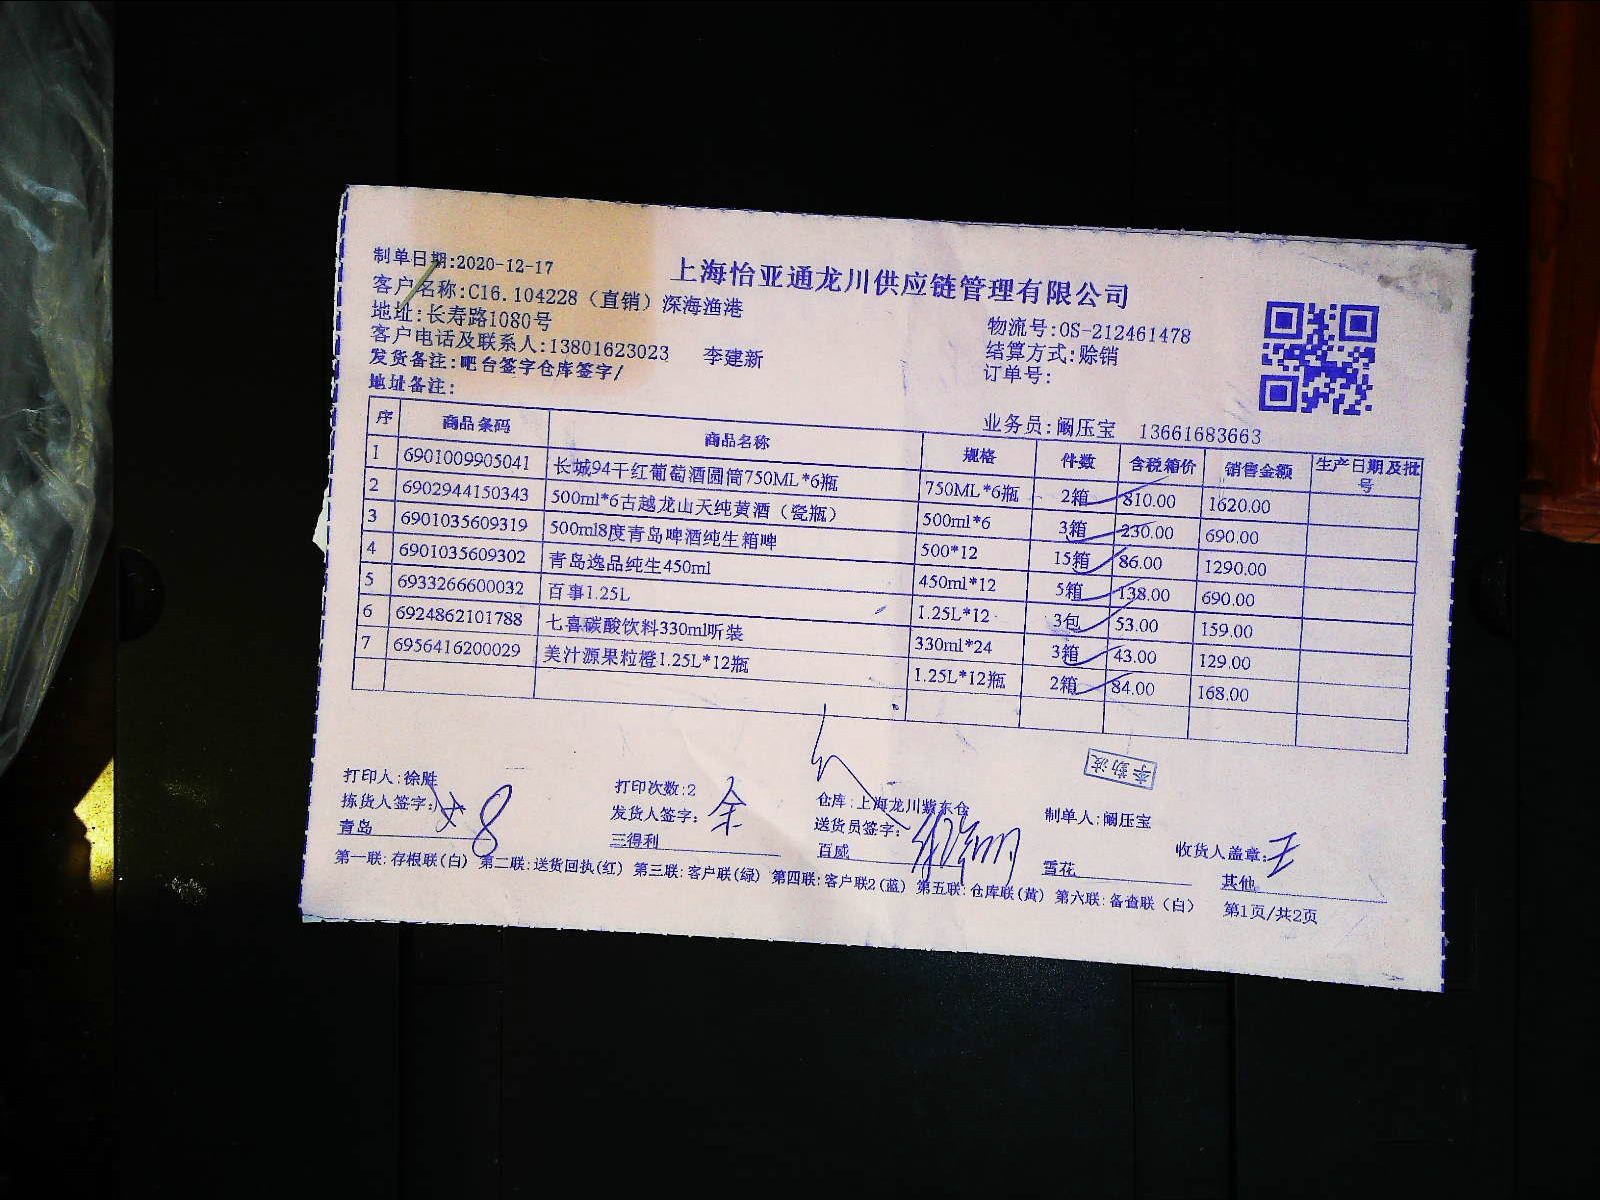 制单日期:2020-12-17
上海怡亚通龙川供应链管理有限公司
客户名称:C16.104228（直销）深海渔港
地址:长寿路1080号
物流号:OS-212461478
客户电话及联系人:13801623023 李建新
结算方式:赊销
发货备注:吧台签字仓库签字/
订单号:
地址备注:
业务员:阚压宝 13661683663
序 商品条码 商品名称 规格 件数 含税箱价 销售金额 生产日期及批号
1 6901009905041 长城94干红葡萄酒圆筒750ML*6瓶 750ML*6瓶 2箱 810.00 1620.00
2 6902944150343 500ml*6古越龙山天纯黄酒（瓷瓶） 500ml*6 3箱 230.00 690.00
3 6901035609319 500ml8度青岛啤酒纯生箱啤 500*12 15箱 86.00 1290.00
4 6901035609302 青岛逸品纯生450ml 450ml*12 5箱 138.00 690.00
5 6933266600032 百事1.25L 1.25L*12 3包 53.00 159.00
6 6924862101788 七喜碳酸饮料330ml听装 330ml*24 3箱 43.00 129.00
7 6956416200029 美汁源果粒橙1.25L*12瓶 1.25L*12瓶 2箱 84.00 168.00
李勤波
打印人:徐胜 打印次数:2 仓库:上海龙川紫东仓 制单人:阚压宝
拣货人签字: 发货人签字: 余 送货员签字: 收货人盖章: 王
青岛 三得利 百威 雪花 其他
第一联:存根联(白) 第二联:送货回执(红) 第三联:客户联(绿) 第四联:客户联2(蓝) 第五联:仓库联(黄) 第六联:备查联(白) 第1页/共2页